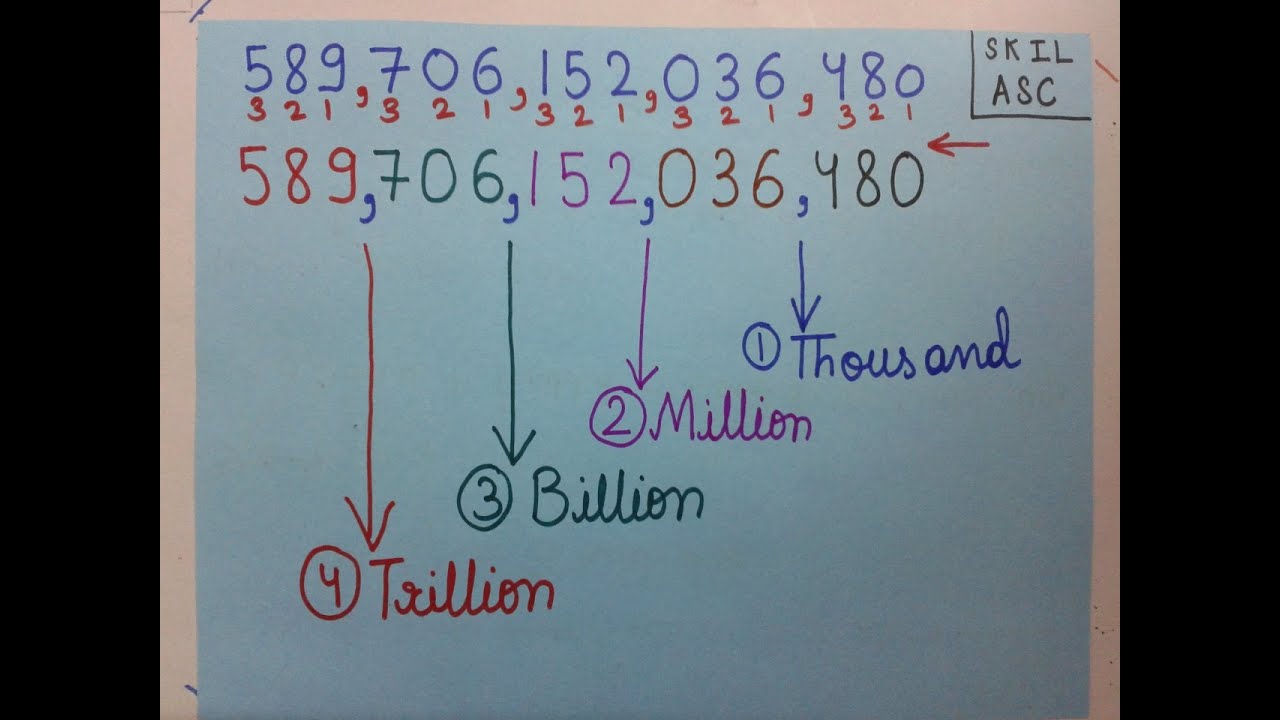 589,706,152,036,480
SKIL
ASC
3 2 1 3 2 1 3 2 1 3 2 1 3 2 1
589,706,152,036,480
① Thousand
② Million
③ Billion
④ Trillion